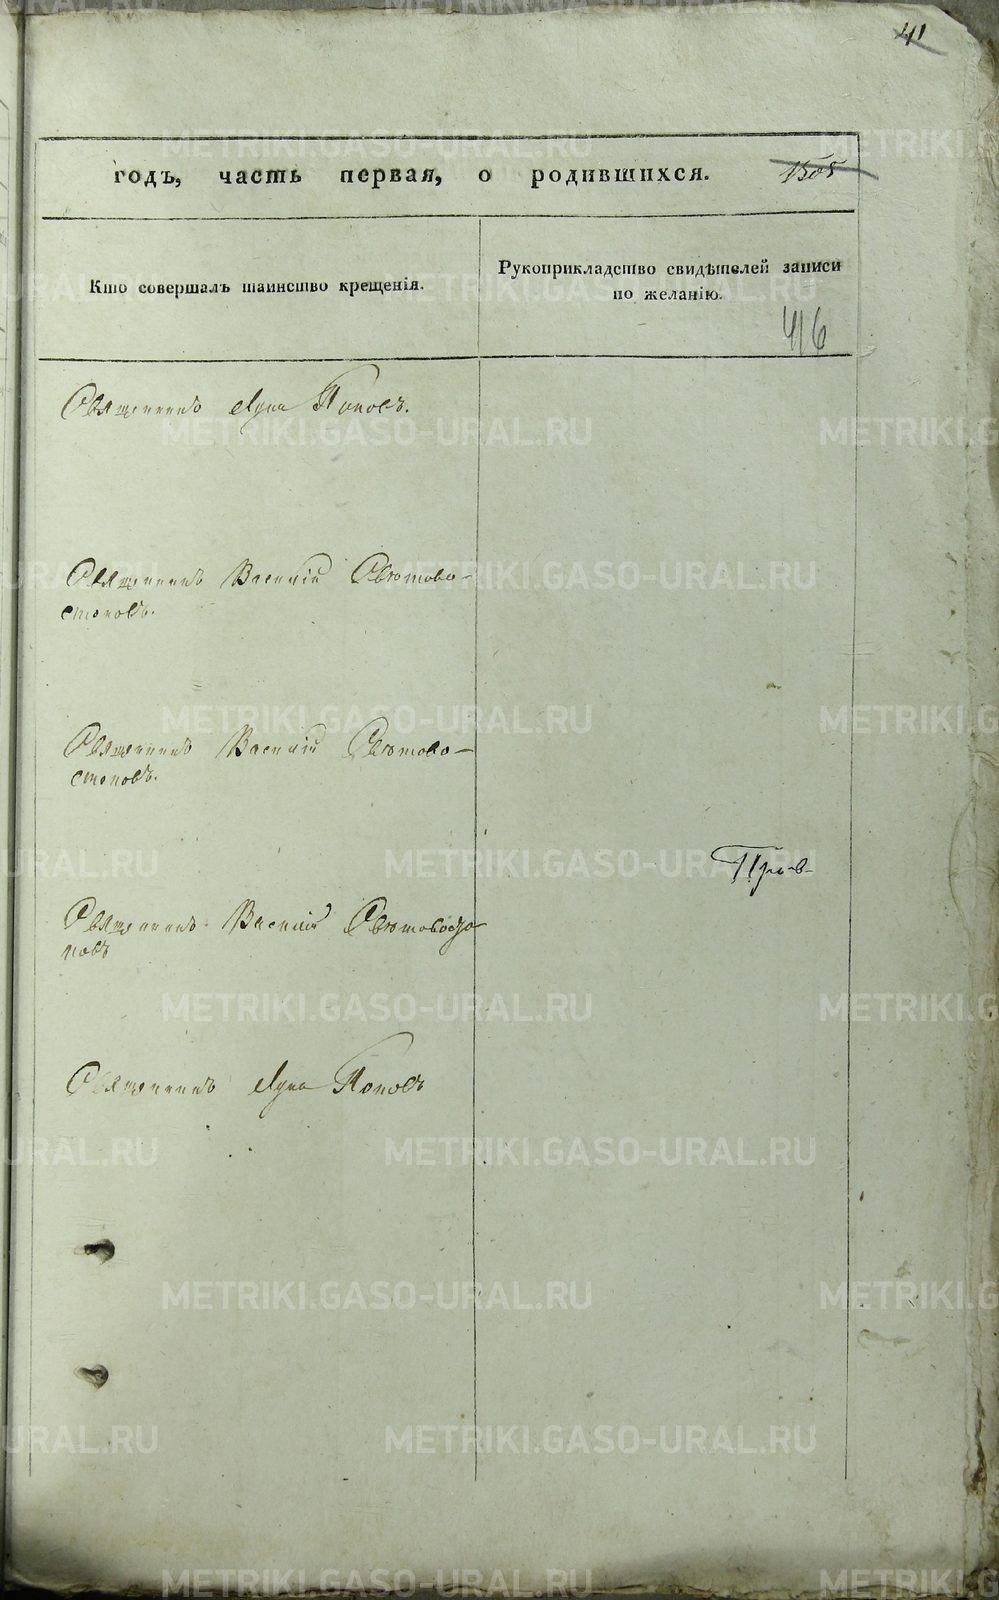 41
годъ, часть первая, о родившихся. 1505
Кто совершалъ таинство крещенія.
Рукоприкладство свидѣтелей записи
по желанію.
416
Священникъ Лука Поповъ.
Священникъ Василій Святово-
стоковъ.
Священникъ Василій Святово-
стоковъ.
Священникъ Василій Святовосто
ковъ
Священникъ Лука Поповъ
METRIKI.GASO-URAL.RU